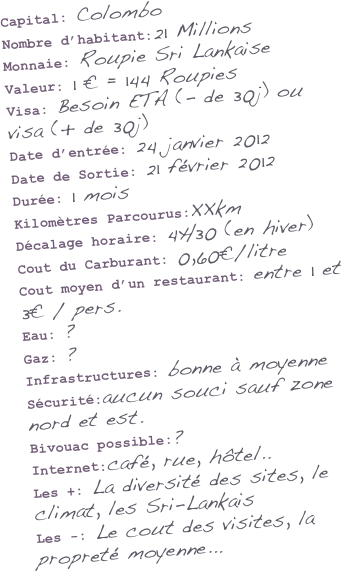 Capital: Colombo
Nombre d'habitant:21 Millions
Monnaie: Roupie Sri Lankaise
Valeur: 1 € = 144 Roupies
Visa: Besoin ETA (- de 30j) ou
visa (+ de 30j)
Date d'entrée: 24 janvier 2012
Date de Sortie: 21 février 2012
Durée: 1 mois
Kilomètres Parcourus:XXkm
Décalage horaire: 4H30 (en hiver)
Cout du Carburant: 0,60€/litre
Cout moyen d'un restaurant: entre 1 et
3€ / pers.
Eau: ?
Gaz: ?
Infrastructures: bonne à moyenne
Sécurité:aucun souci sauf zone
nord et est.
Bivouac possible:?
Internet:café, rue, hôtel..
Les +: La diversité des sites, le
climat, les Sri-Lankais
Les -: Le cout des visites, la
propreté moyenne...